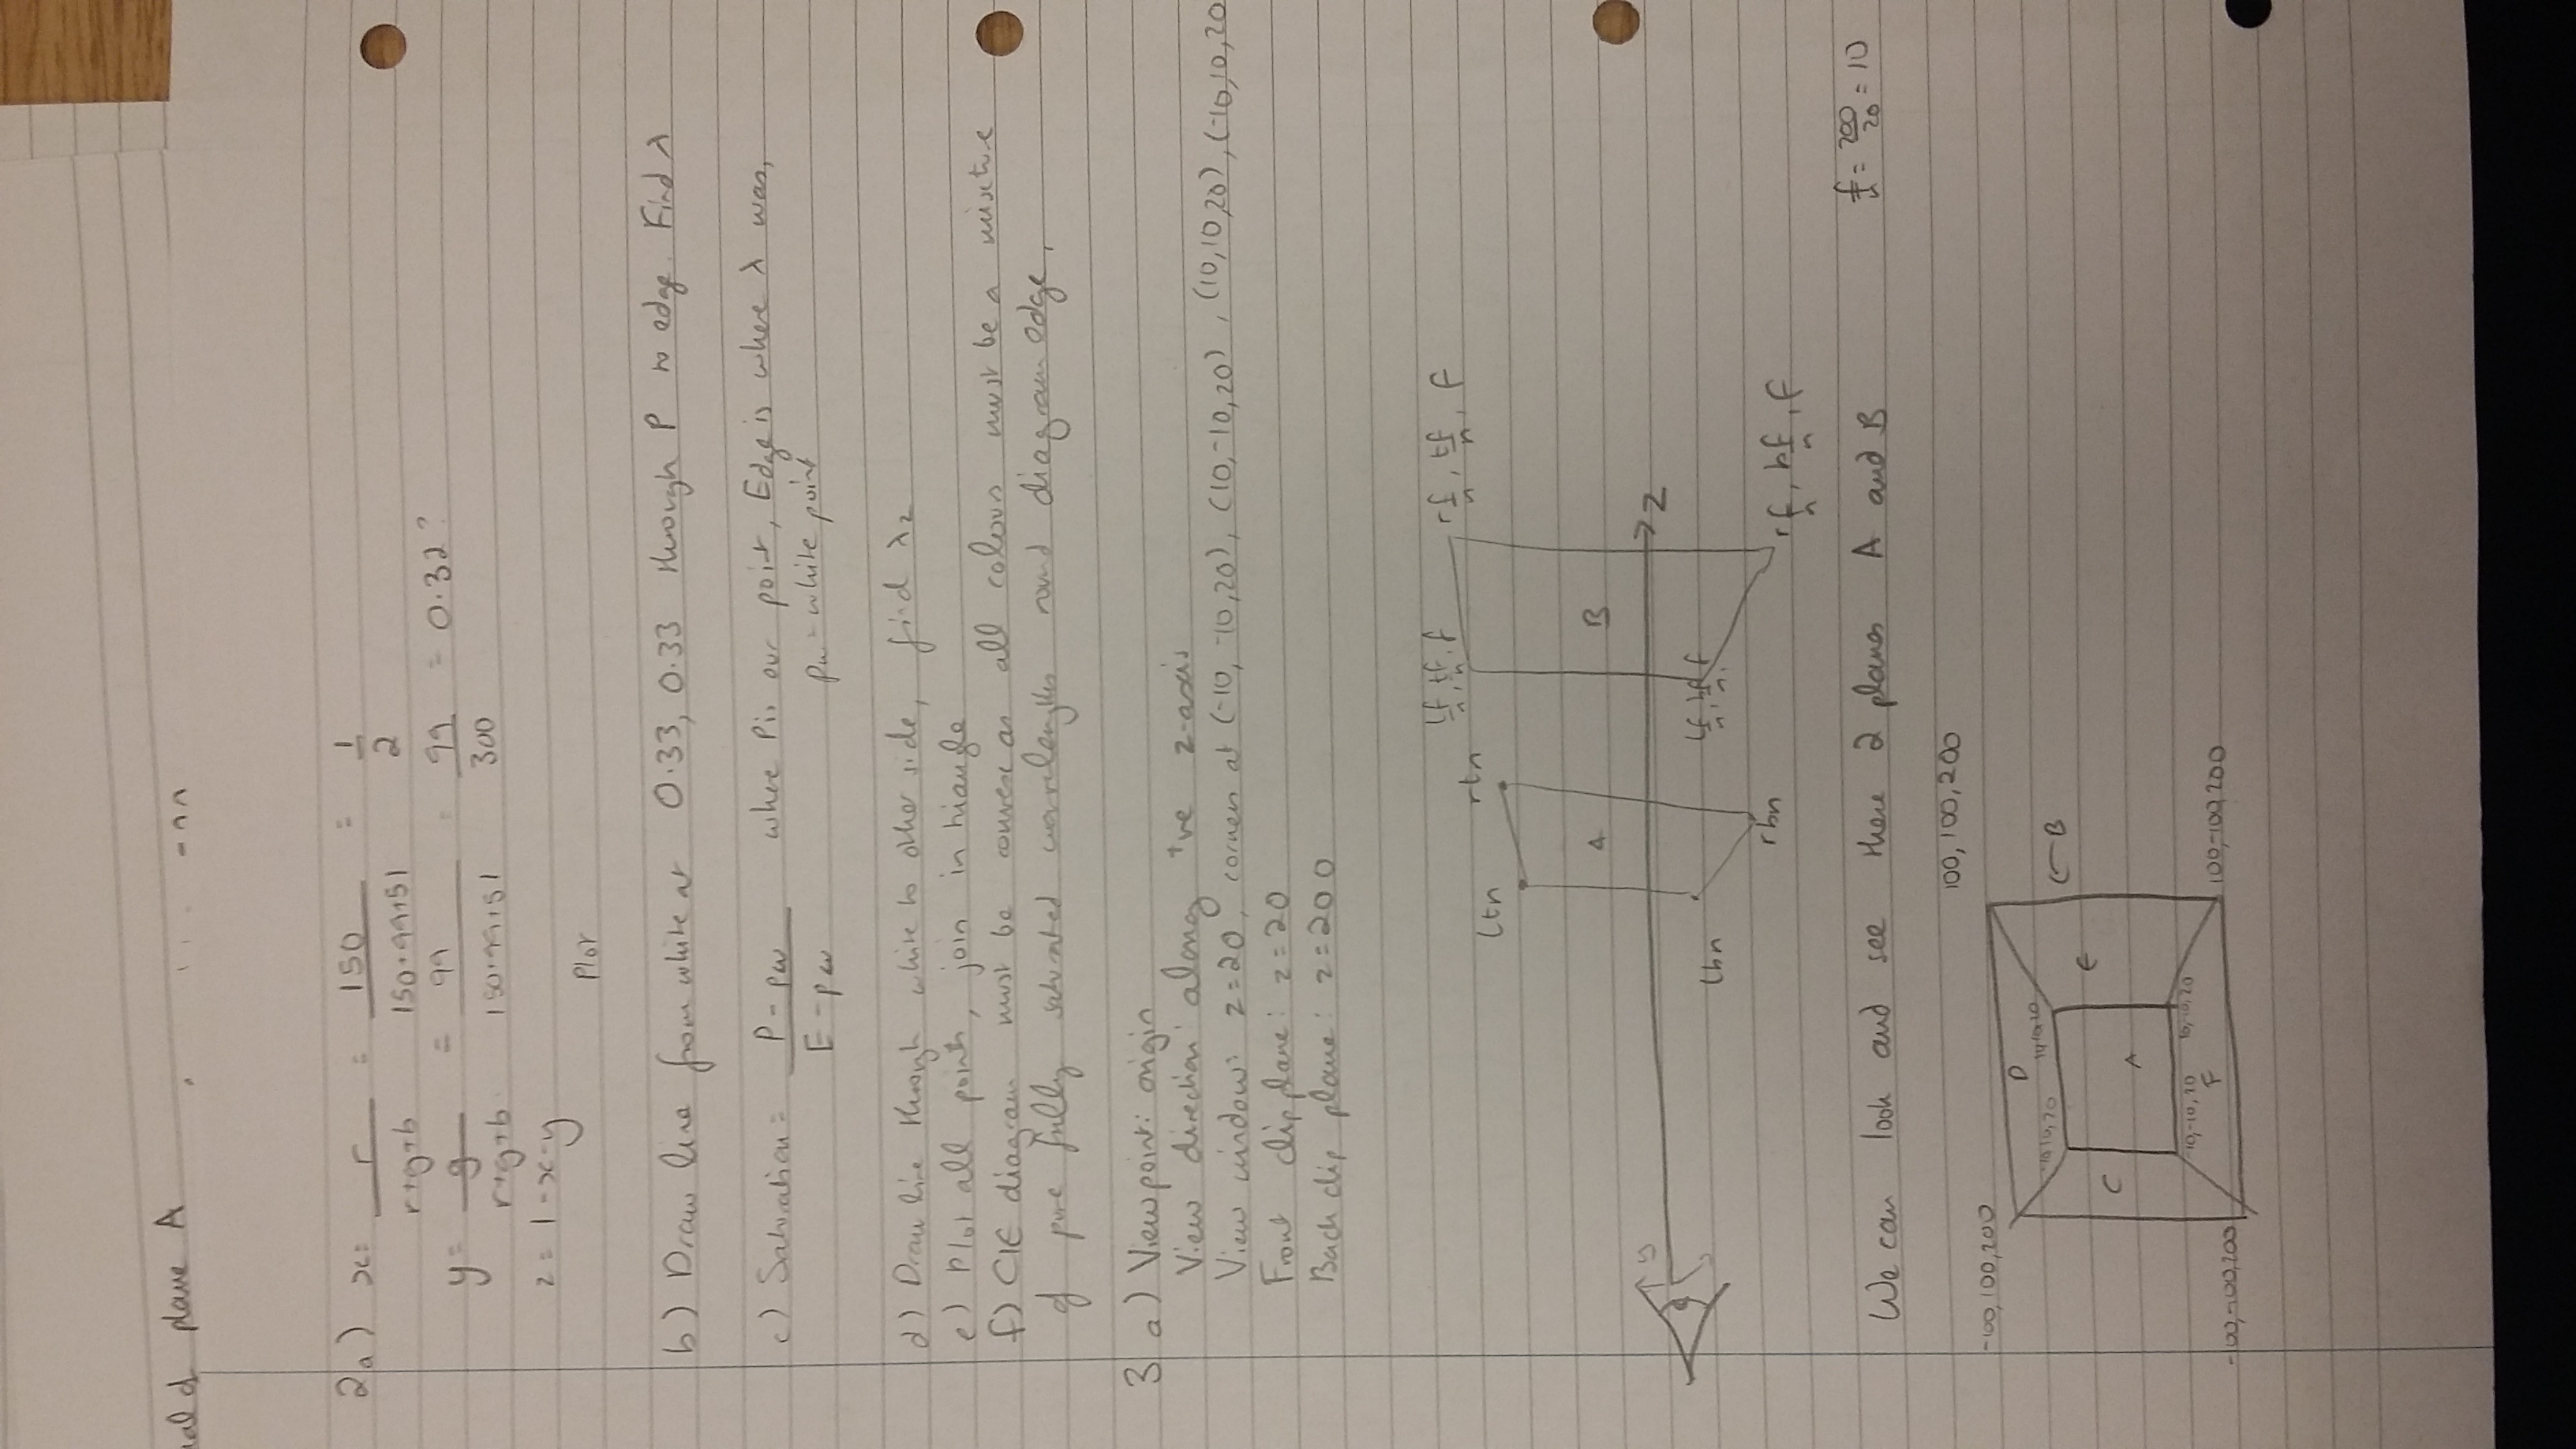 plane A
2a) x = r / r+g+b = 150 / 150+99+51 = 1/2
y = g / r+g+b = 99 / 150+99+51 = 99/300 = 0.32?
z = 1-x-y
Plot
b) Draw line from white at 0.33, 0.33 through P to edge. Find λ
c) Saturation = P - pw / E - pw where P is our point, Edge is where λ was,
pw = white point
d) Draw line through white to other side, find λ2
e) Plot all points, join in triangle
f) CIE diagram must be convex as all colours must be a mixture
of pure fully saturated wavelengths round diagram edge,
3 a) Viewpoint: origin
View direction: along +ve z-axis
View window: z=20, corners at (-10, -10, 20), (10, -10, 20), (10, 10, 20), (-10, 10, 20
Front clip plane: z=20
Back clip plane: z=200
lf/n, tf/n, f rf/n, tf/n, f
ltn rtn
A B
y z
lbn
rbn rf/n, bf/n, f
We can look and see there 2 planes A and B f/n = 200/20 = 10
100, 100, 200
-100, 100, 200
D
-10, 10, 20 10, 10, 20
← B
C E
A
-10, -10, 20 10, -10, 20
F
-100, -100, 200 100, -100, 200